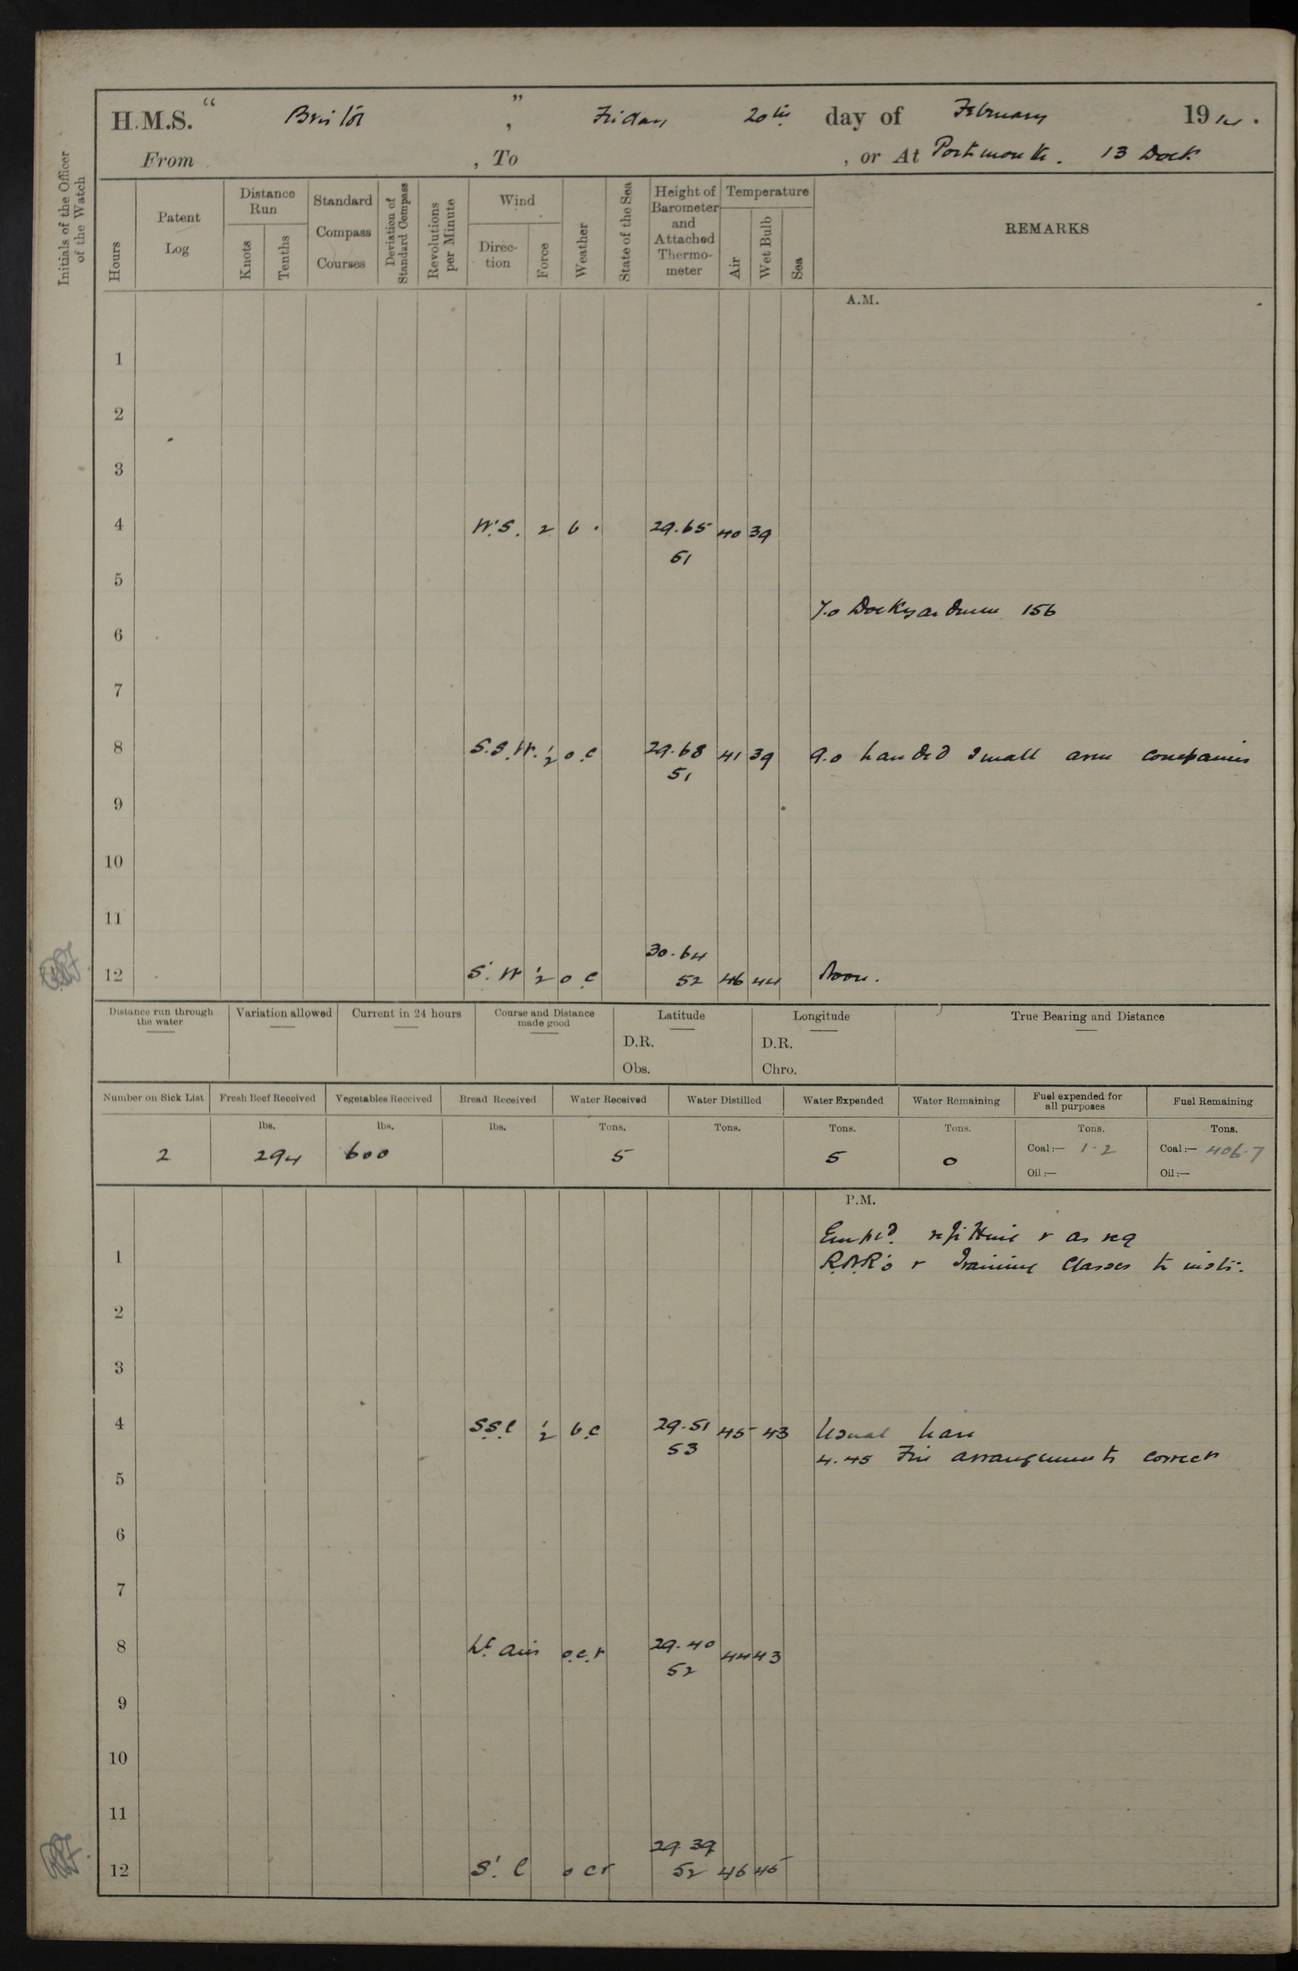 H.M.S. " Bristol ", Friday 20th day of February 1914.
From , To , or At Portsmouth. 13 Dock
Initials of the Officer of the Watch
Hours
Patent Log
Distance Run
Knots
Tenths
Standard Compass Courses
Deviation of Standard Compass
Revolutions per Minute
Wind
Direction
Force
Weather
State of the Sea
Height of Barometer and Attached Thermometer
Temperature
Air
Wet Bulb
Sea
REMARKS
A.M.
1
2
3
4 W.S. 2 b. 29.65 40 39
51
5
7.0 Dockyardmen 156
6
7
8 S.S.W. 1/2 o.c 29.68 41 39 9.0 landed small arm companies
51
9
10
11
30.64
12 S.W 1/2 o c 52 46 44 Noon.
Distance run through the water
Variation allowed
Current in 24 hours
Course and Distance made good
Latitude
D.R.
Obs.
Longitude
D.R.
Chro.
True Bearing and Distance
Number on Sick List Fresh Beef Received Vegetables Received Bread Received Water Received Water Distilled Water Expended Water Remaining Fuel expended for all purposes Fuel Remaining
lbs. lbs. lbs. Tons. Tons. Tons. Tons. Tons. Tons.
2 294 600 5 5 0 Coal:— 1.2 Coal:— 406.7
Oil:— Oil:—
P.M.
Emp'd. refitting & as req
1 R.N.R's & Training Classes to instr.
2
3
4 S.S.E 1/2 b.c 29.51 45 43 Usual leave
53 4.45 Fire arrangements correct
5
6
7
8 Lt. airs o.c.r 29.40 44 43
52
9
10
11
29.39
12 S'.E o c r 52 46 45